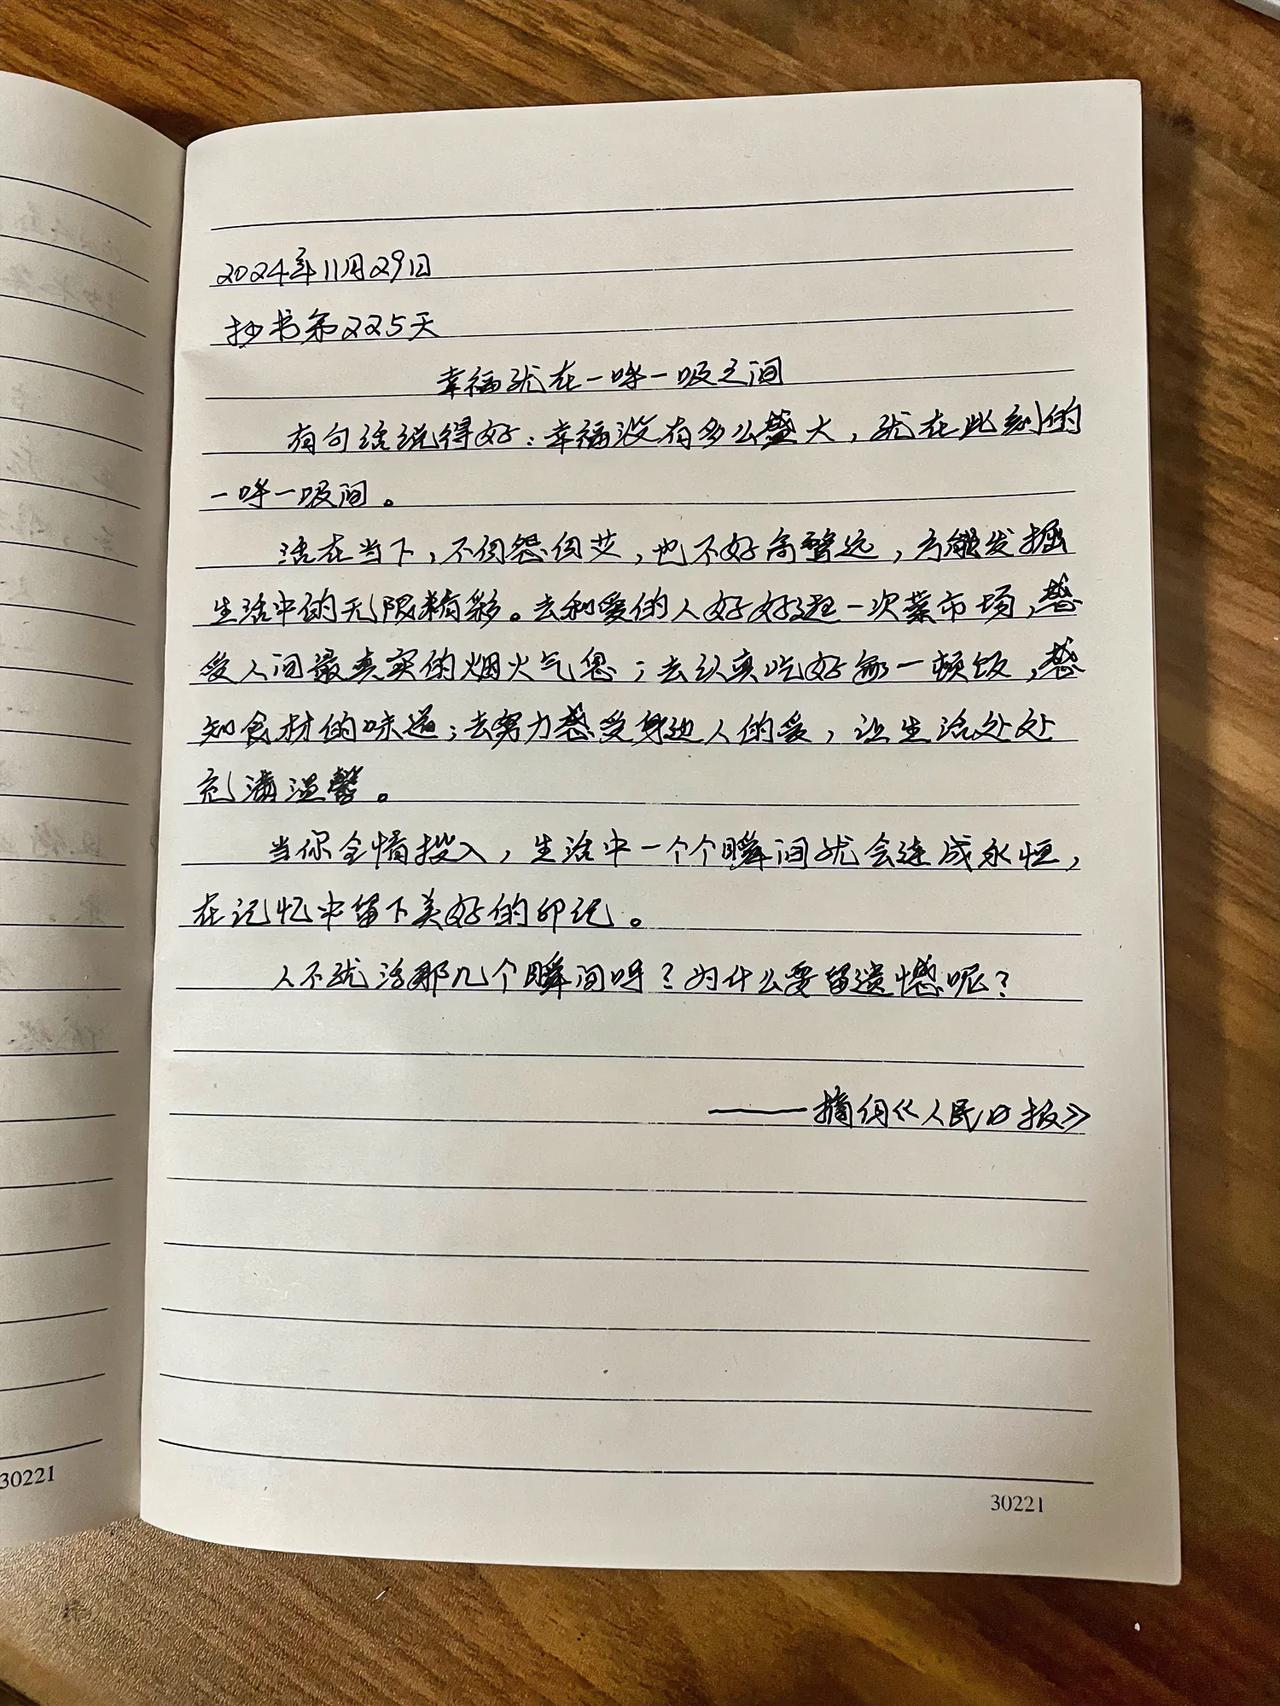 2024年11月29日
抄书第225天
幸福就在一呼一吸之间
有句话说得好：幸福没有多么盛大，就在此刻的
一呼一吸间。
活在当下，不自怨自艾，也不好高骛远，方能发掘
生活中的无限精彩。去和爱的人好好逛一次菜市场，感
受人间最真实的烟火气息；去认真吃好每一顿饭，感
知食材的味道；去努力感受身边人的爱，让生活处处
充满温馨。
当你全情投入，生活中一个个瞬间就会连成永恒，
在记忆中留下美好的印记。
人不就活那几个瞬间吗？为什么要留遗憾呢？
——摘自《人民日报》
30221
30221